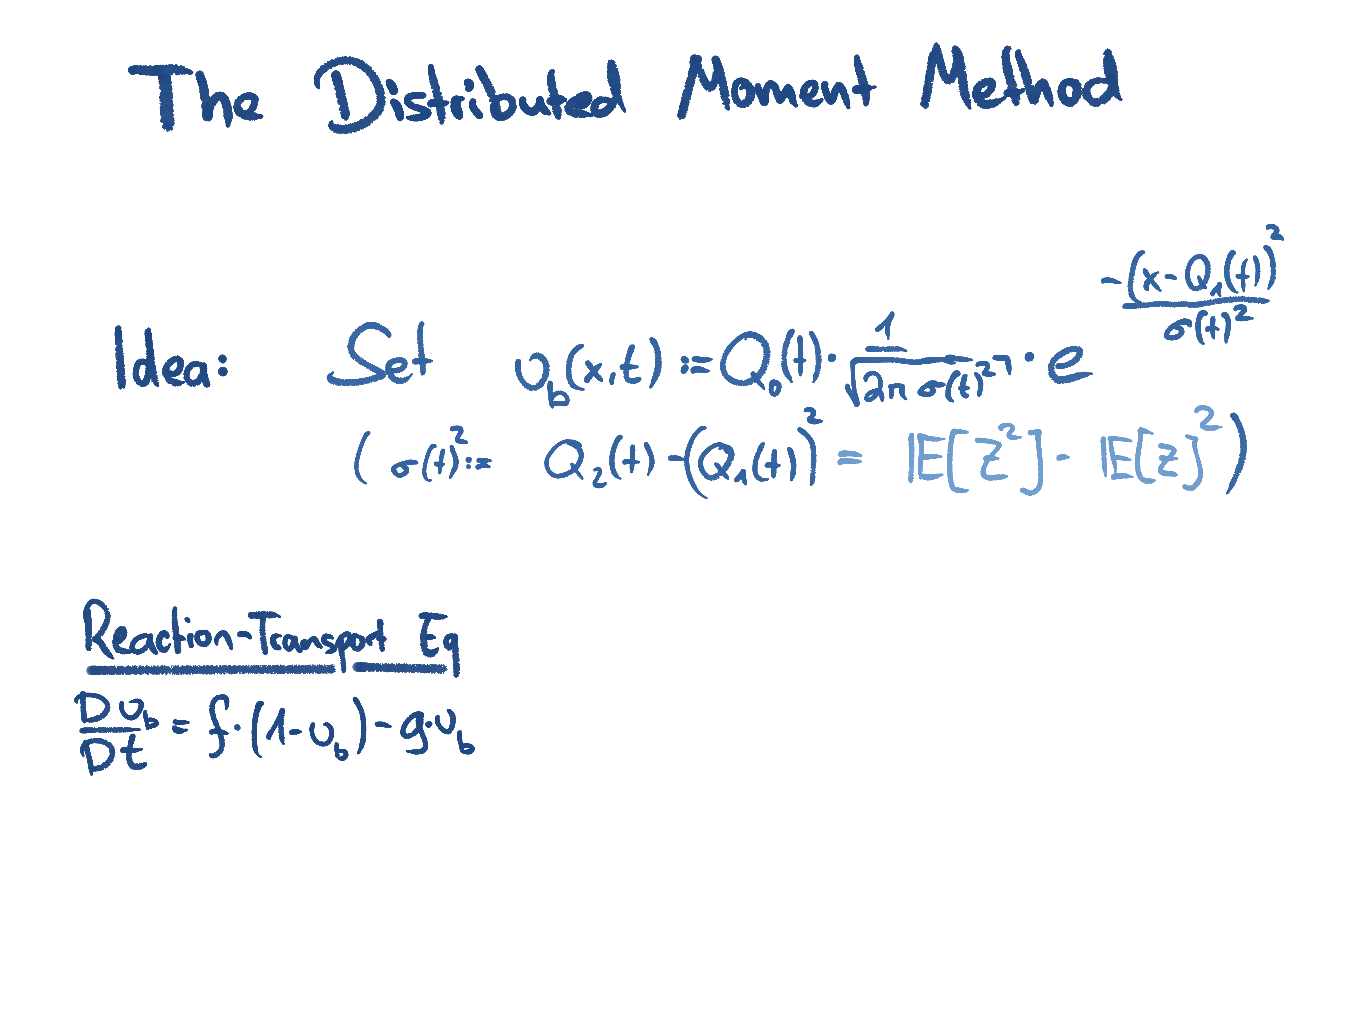 The Distributed Moment Method
Idea: Set υ_b(x,t) := Q₀(t) · 1/√(2π σ(t)²) · e^(-(x-Q₁(t))²/σ(t)²)
(σ(t)² := Q₂(t) - (Q₁(t))² = 𝔼[Z²] - 𝔼[Z]²)
Reaction-Transport Eq
Dυ_b/Dt = f·(1-υ_b) - g·υ_b